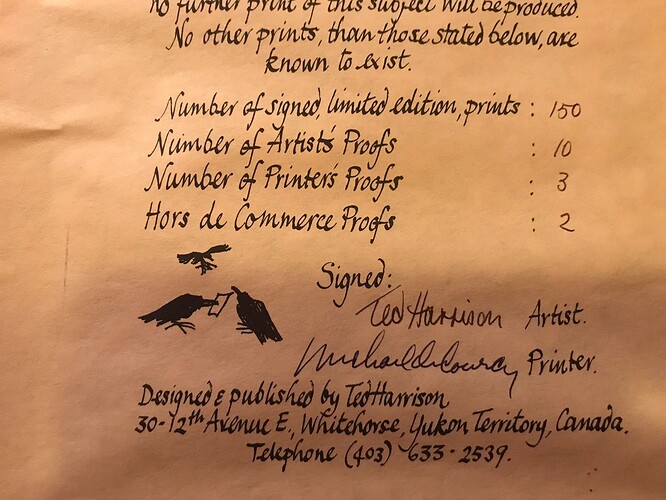 No further print of this subject will be produced.
No other prints, than those stated below, are
known to exist.
Number of signed, limited edition, prints : 150
Number of Artist's Proofs : 10
Number of Printer's Proofs : 3
Hors de Commerce Proofs : 2
Signed:
Ted Harrison Artist.
Printer.
Designed & published by Ted Harrison
30-12th Avenue E., Whitehorse, Yukon Territory, Canada.
Telephone (403) 633-2539.